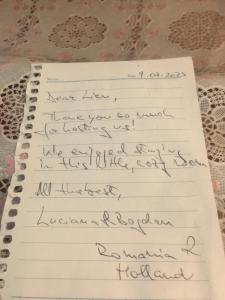 9.07.2023
Dear Lien,
Thank you so much
for hosting us!
We enjoyed staying
in this little, cozy room
All the best,
Luciana & Bogdan
Romania &
Holland